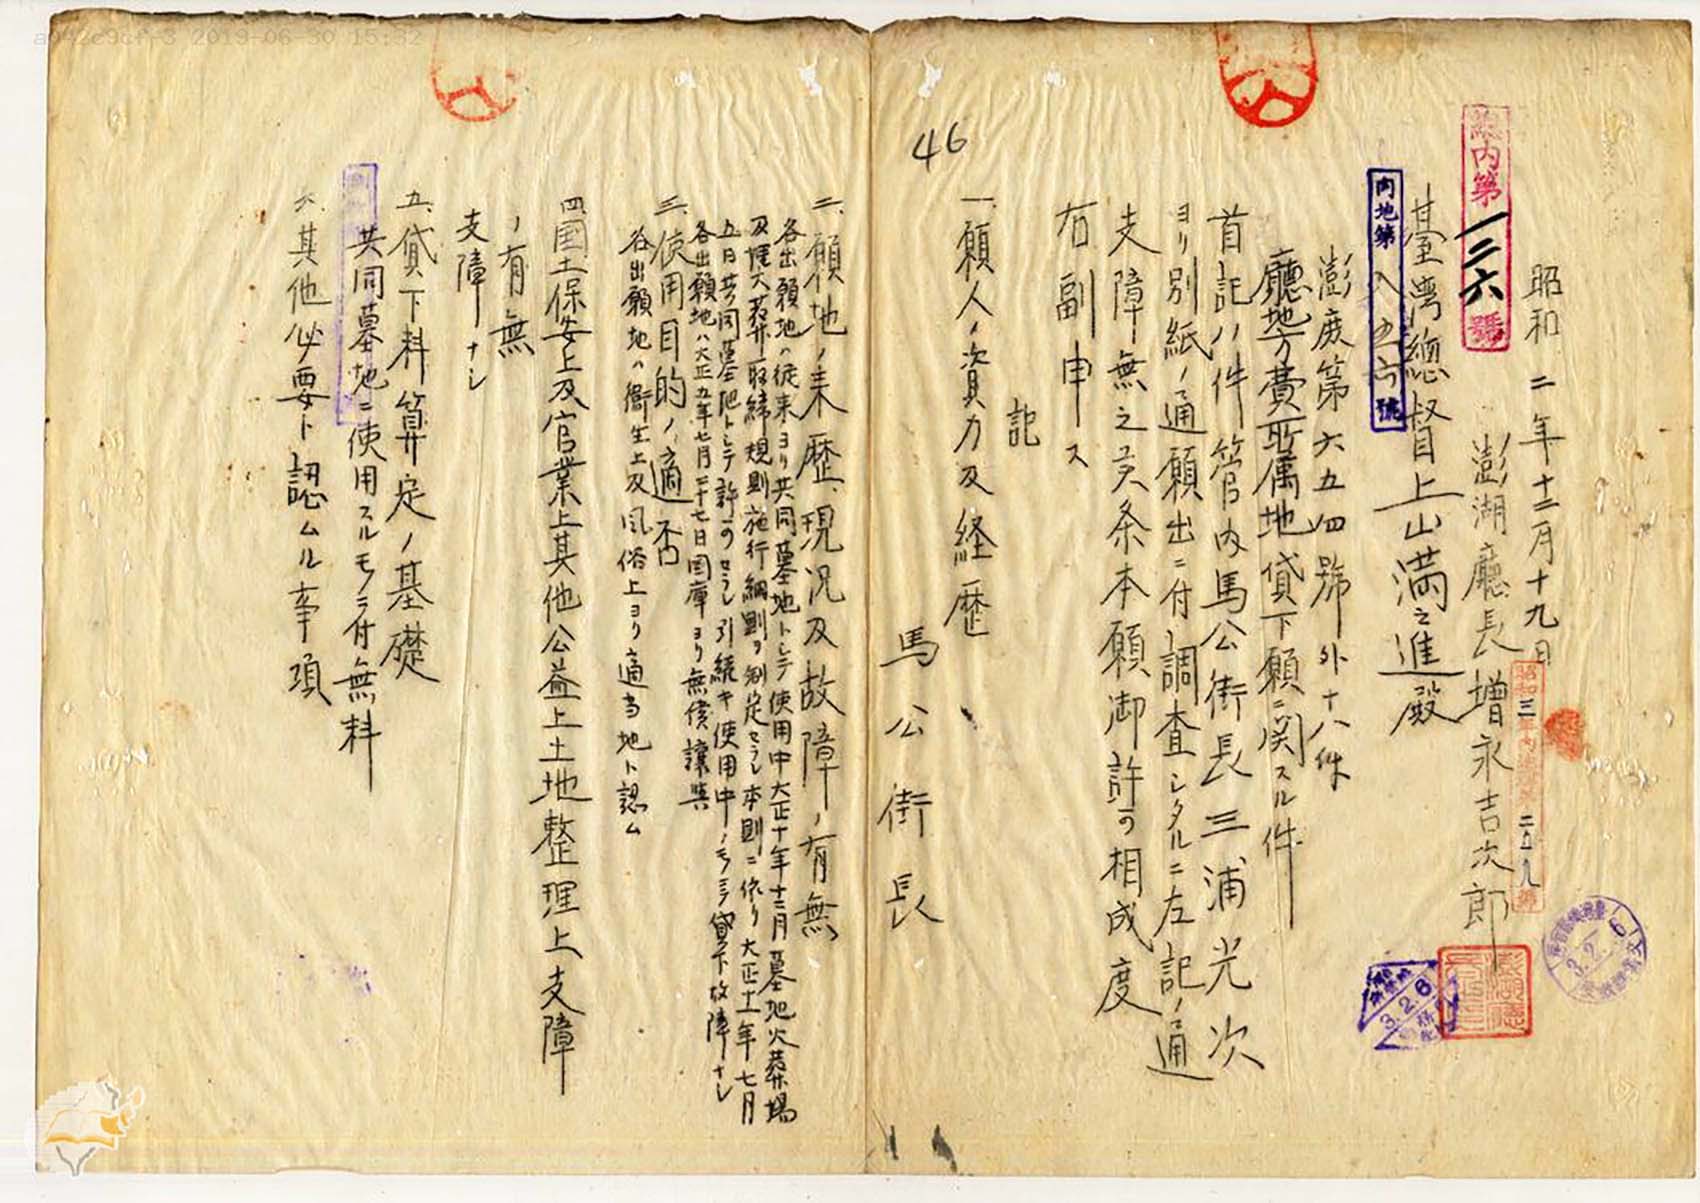 昭和二年十二月十九日
澎湖廳長增永吉次郎
臺灣總督上山満之進殿
澎庶第六五四號外十八件
廳地方費所属地貸下願ニ関スル件
首記ノ件管内馬公街長三浦光次
ヨリ別紙ノ通願出ニ付調査シタルニ左記ノ通
支障無之候条本願御許可相成度
右副申ス
記
一、願人ノ資力及経歴
馬公街長
46
二、願地ノ来歴、現况及故障ノ有無
各出願地ハ従来ヨリ共同墓地トシテ使用中大正十年十二月墓地火葬場
及埋火葬取締規則施行細則ヲ制定セラレ本則ニ依リ大正十一年七月
五日共同墓地トシテ許可セラレ引続キ使用中ノモノニテ貸下故障ナシ
各出願地ハ大正五年七月二十七日国庫ヨリ無償譲與
三、使用目的ノ適否
各出願地ハ衛生上及風俗上ヨリ適当地ト認ム
四、国土保安上及官業上其他公益上土地整理上支障
ノ有無
支障ナシ
五、貸下料算定ノ基礎
共同墓地ニ使用スルモノニ付無料
六、其他必要ト認ムル事項
總内第一三六號
内地第八五六號
3.2.6
3.2.8
a042c9cf-3 2019-06-30 15:32